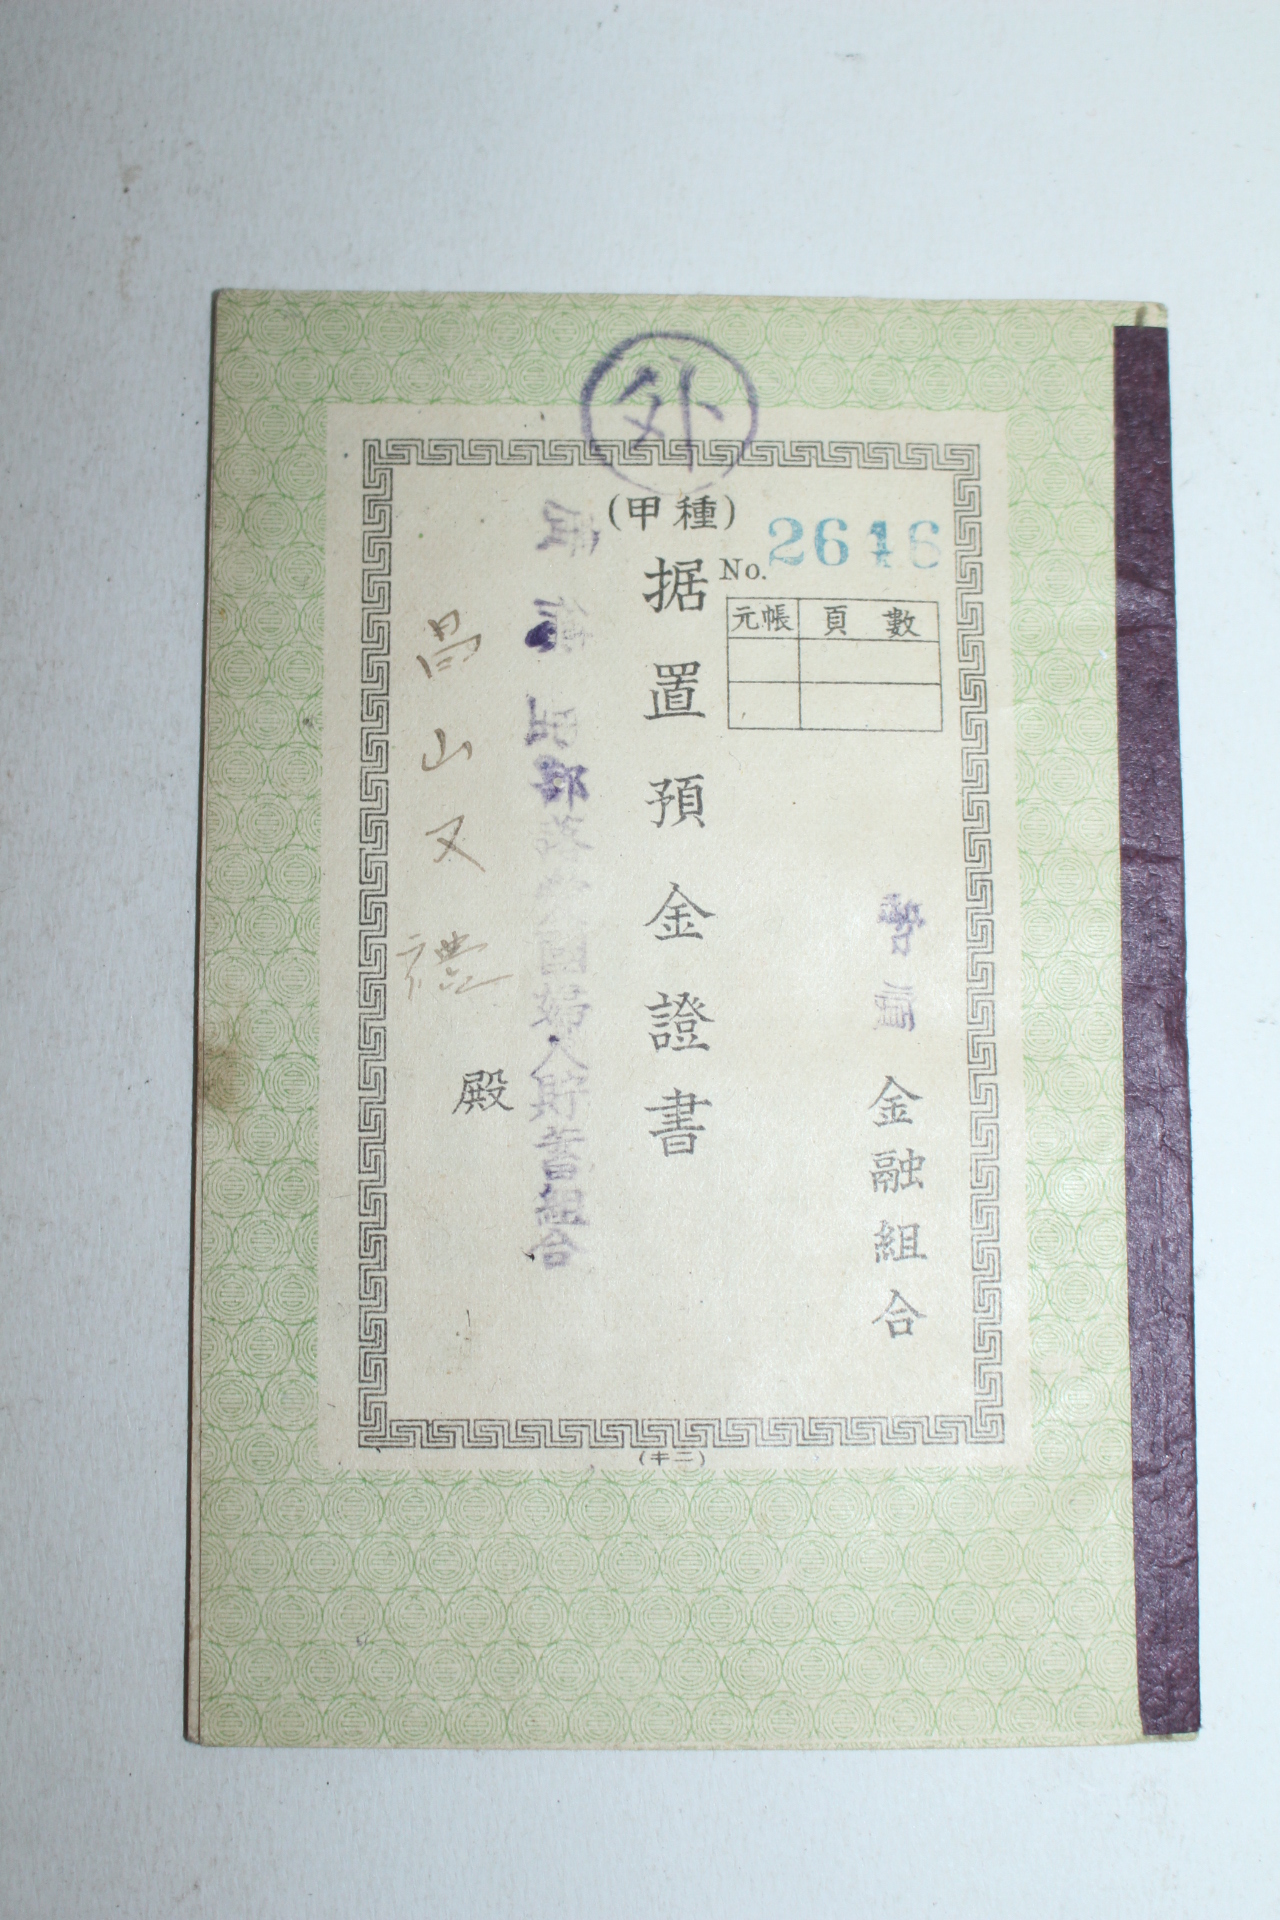 外
(甲種)
No. 2616
元帳 頁數
金融組合
据置預金證書
部落 國婦人貯蓄組合
昌山又禮 殿
(キニ)